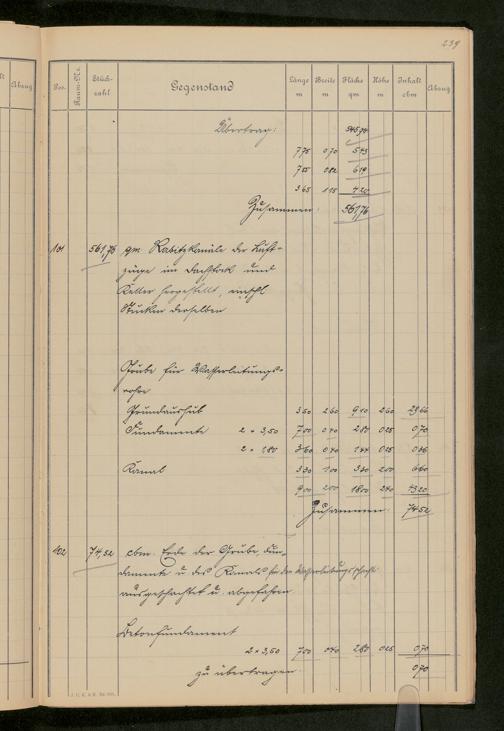 239
Pos. Raum-No. Stückzahl Gegenstand Länge m Breite m Fläche qm Höhe m Inhalt cbm Abzug
Übertrag: 545,94
7,75 0,70 5,43
7,55 0,82 6,19
3,65 1,15 4,20
Zusammen: 561,76
101 561,76 qm Rabitzkanäle der Luft-
züge im Dachstock und
Keller hergestellt, einschl
Stücken derselben
Grube für Wasserleitungs-
rohre
Grundaushub 3,50 2,60 9,10 2,60 23,66
Fundamente 2 × 3,50 7,00 0,40 2,80 0,25 0,70
2 × 1,80 3,60 0,40 1,44 0,25 0,36
Kanal 3,30 1,00 3,30 2,00 6,60
9,00 2,00 18,00 2,40 43,20
Zusammen 74,52
102 74,52 cbm. Erde der Grube, Fun-
damente u. des Kanals für den Wasserleitungsschacht
ausgeschachtet u. abgefahren
Betonfundament
2 × 3,50 7,00 0,40 2,80 0,25 0,70
zu übertragen 0,70